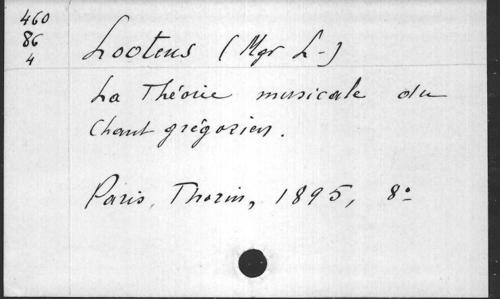 460
86
4
Lootens (Mgr L-)
La Théorie musicale du
Chant grégorien.
Paris, Thorin, 1895, 8°